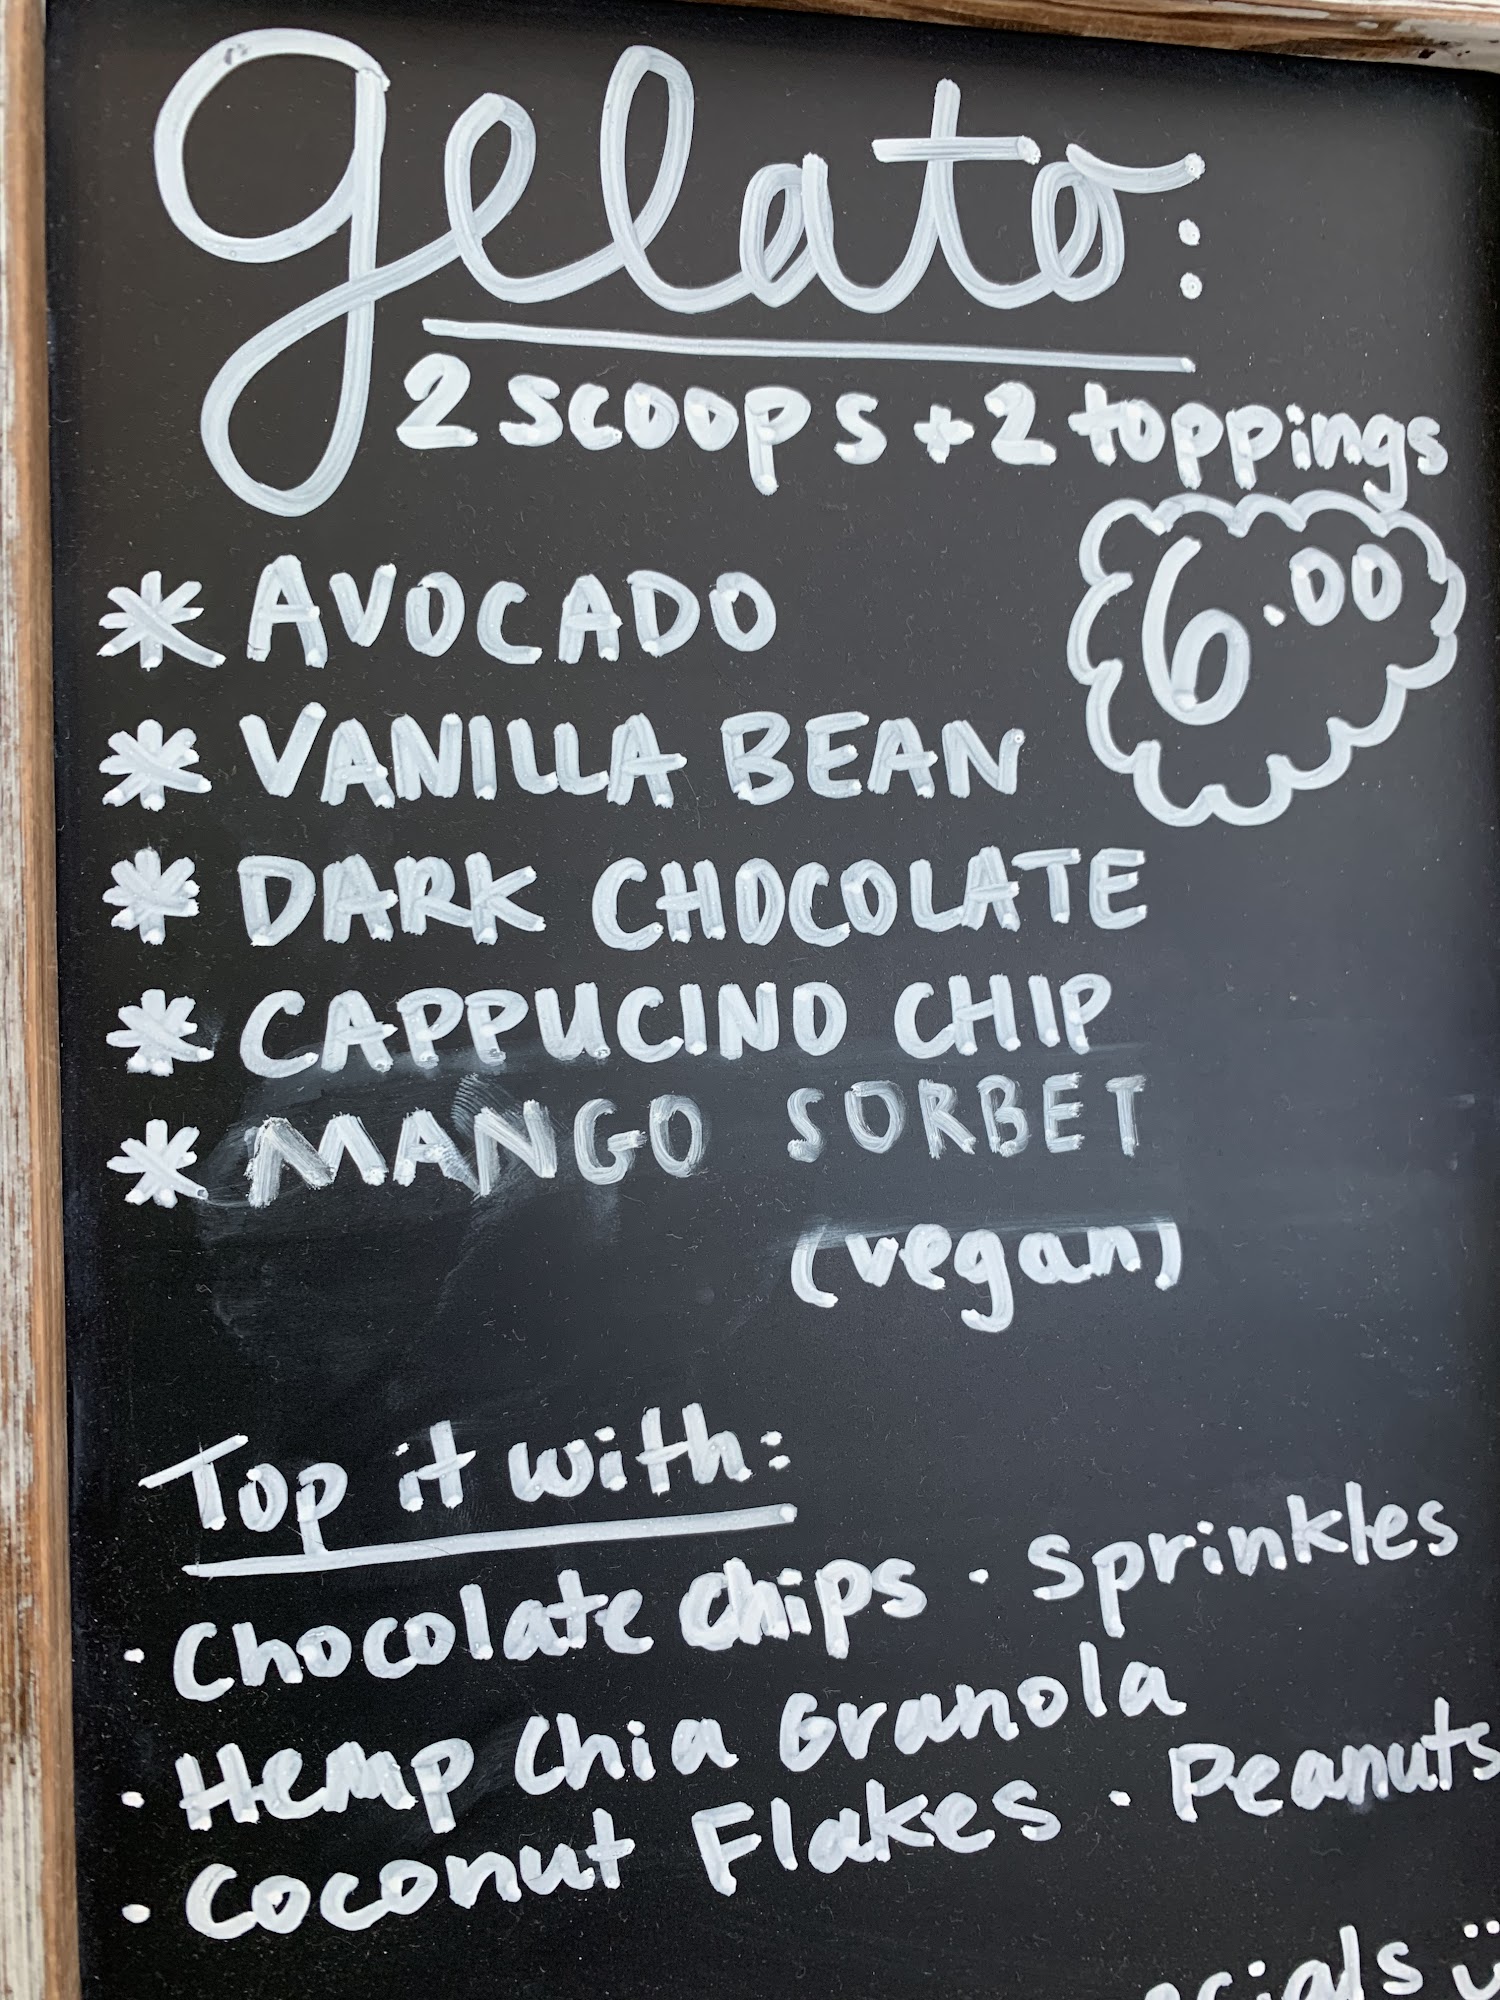 gelato:
2 scoops + 2 toppings
6.00
* AVOCADO
* VANILLA BEAN
* DARK CHOCOLATE
* CAPPUCINO CHIP
* MANGO SORBET
(vegan)
Top it with:
· Chocolate Chips · Sprinkles
· Hemp Chia Granola
· Coconut Flakes · Peanuts